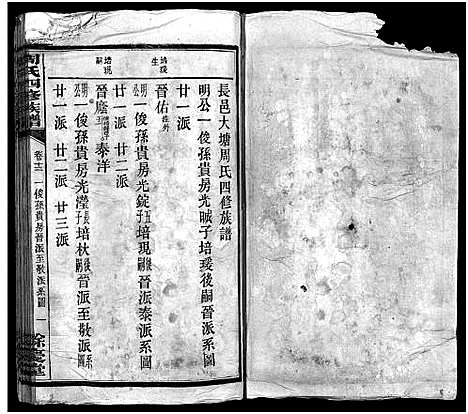 長邑大塘周氏四修族譜
明公一俊孫貴房光晠子培瑗後嗣晉派系圖
廿一派
晉佑 培瑗生 往外
明公一俊孫貴房光錠五子培現後嗣晉派泰派系圖
廿一派 廿二派
晉麿 培現嗣 泰洋
明公一俊孫貴房光瀅長子培杕後嗣晉派至敬派系圖
廿一派 廿二派 廿三派
周氏四修族譜
卷十二 一俊孫貴房晉派至敬派系圖 一
餘慶堂